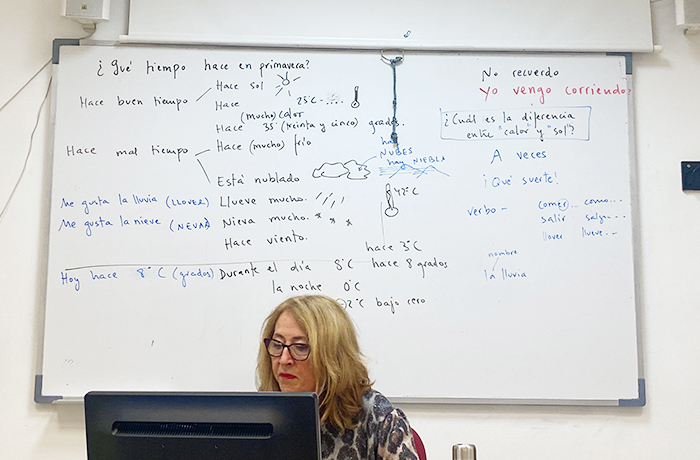 ¿Qué tiempo hace en primavera?
Hace buen tiempo
Hace sol
Hace 25°C
(mucho) calor
Hace 35 (treinta y cinco) grados.
Hace mal tiempo
Hace (mucho) frío
hay
NUBES
hay NIEBLA
Está nublado
Me gusta la lluvia (LLOVER)
Llueve mucho.
42°C
Me gusta la nieve (NEVAR)
Nieva mucho.
Hace viento.
hace 3°C
Hoy hace 8°C (grados)
Durante el día 8°C hace 8 grados
la noche 0°C
-2°C bajo cero
No recuerdo
Yo vengo corriendo?
¿Cuál es la diferencia
entre "calor" y "sol"?
A veces
¡Qué suerte!
verbo - comer... como...
salir salgo...
llover llueve...
nombre
la lluvia